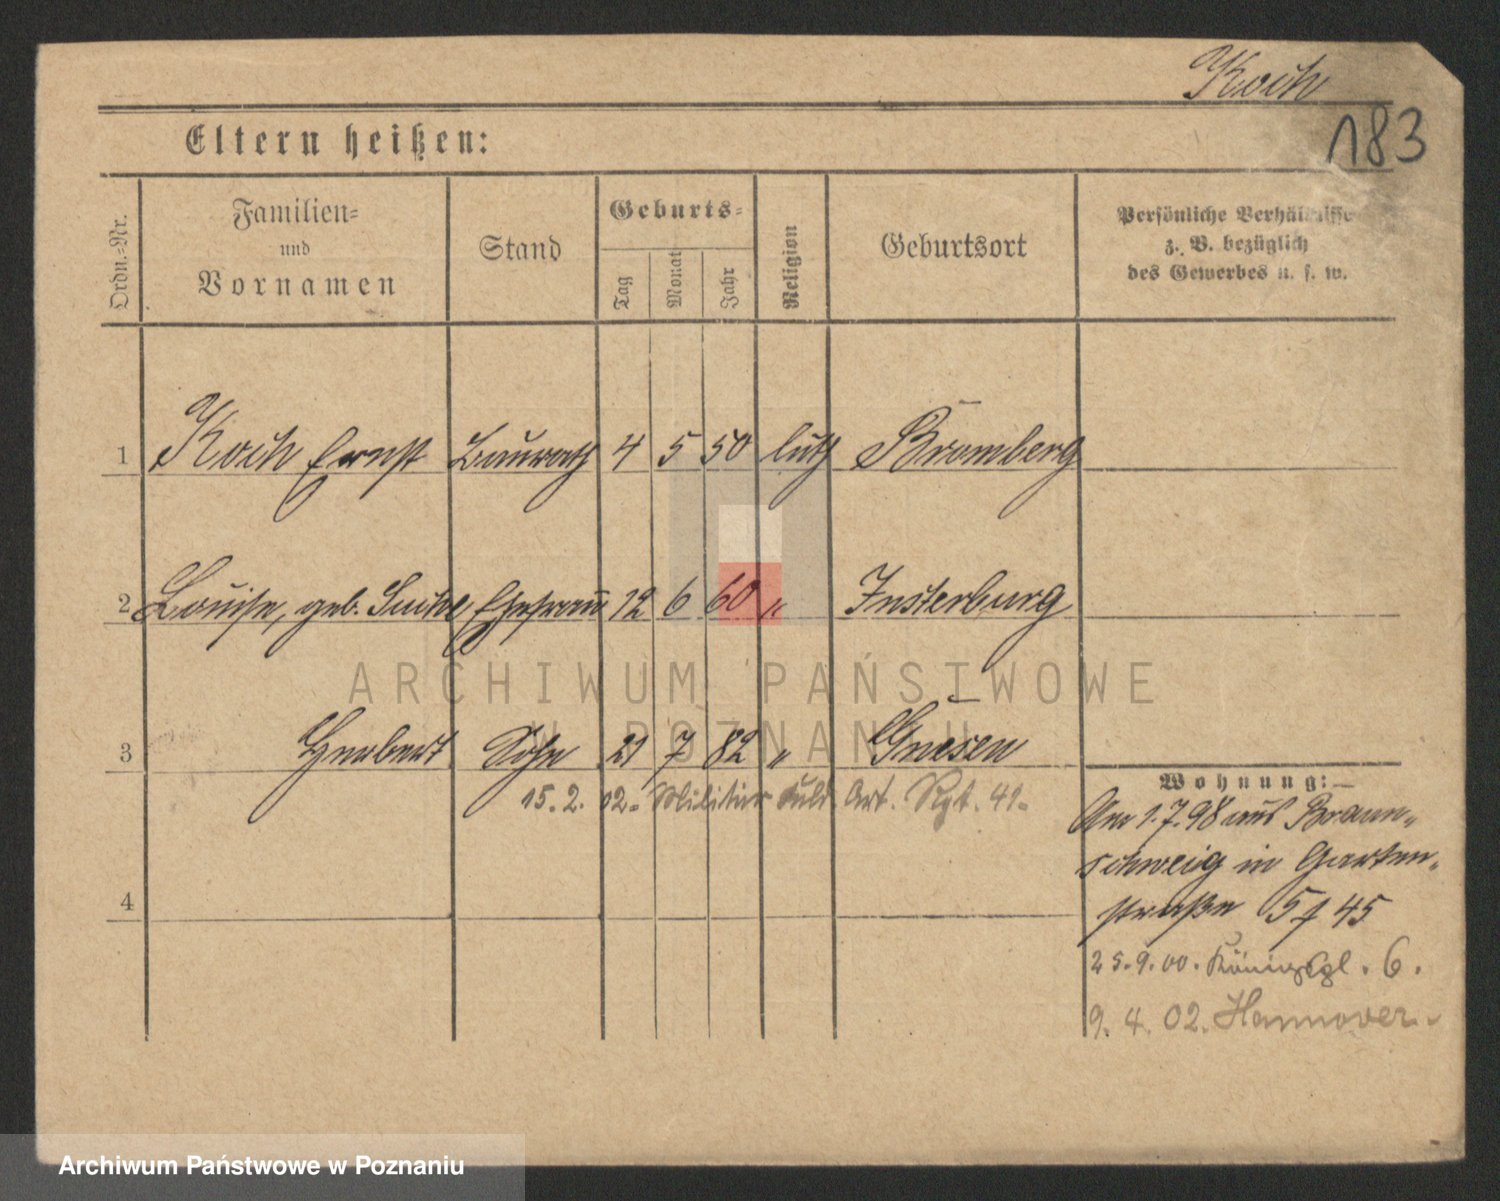 Koch
183
Eltern heißen:
Ordn.-Nr.
Familien-
und
Vornamen
Stand
Geburts-
Tag
Monat
Jahr
Religion
Geburtsort
Persönliche Verhältnisse
z. B. bezüglich
des Gewerbes u. s. w.
1 Koch Ernst Baurath 4 5 50 luth Bromberg
2 Louise, geb. Ehefrau 12 6 60 " Insterburg
ARCHIWUM PAŃSTWOWE
W POZNANIU
3 Herbert Sohn 21 7 82 " Gnesen
15. 2. 02. Militär Feld Art. Rgt. 41.
4
Wohnung:
Am 1.7.98 aus Braun-
schweig in Garten-
straße 5 f 45
25.9.00. Königspl. 6.
9. 4. 02. Hannover.
Archiwum Państwowe w Poznaniu